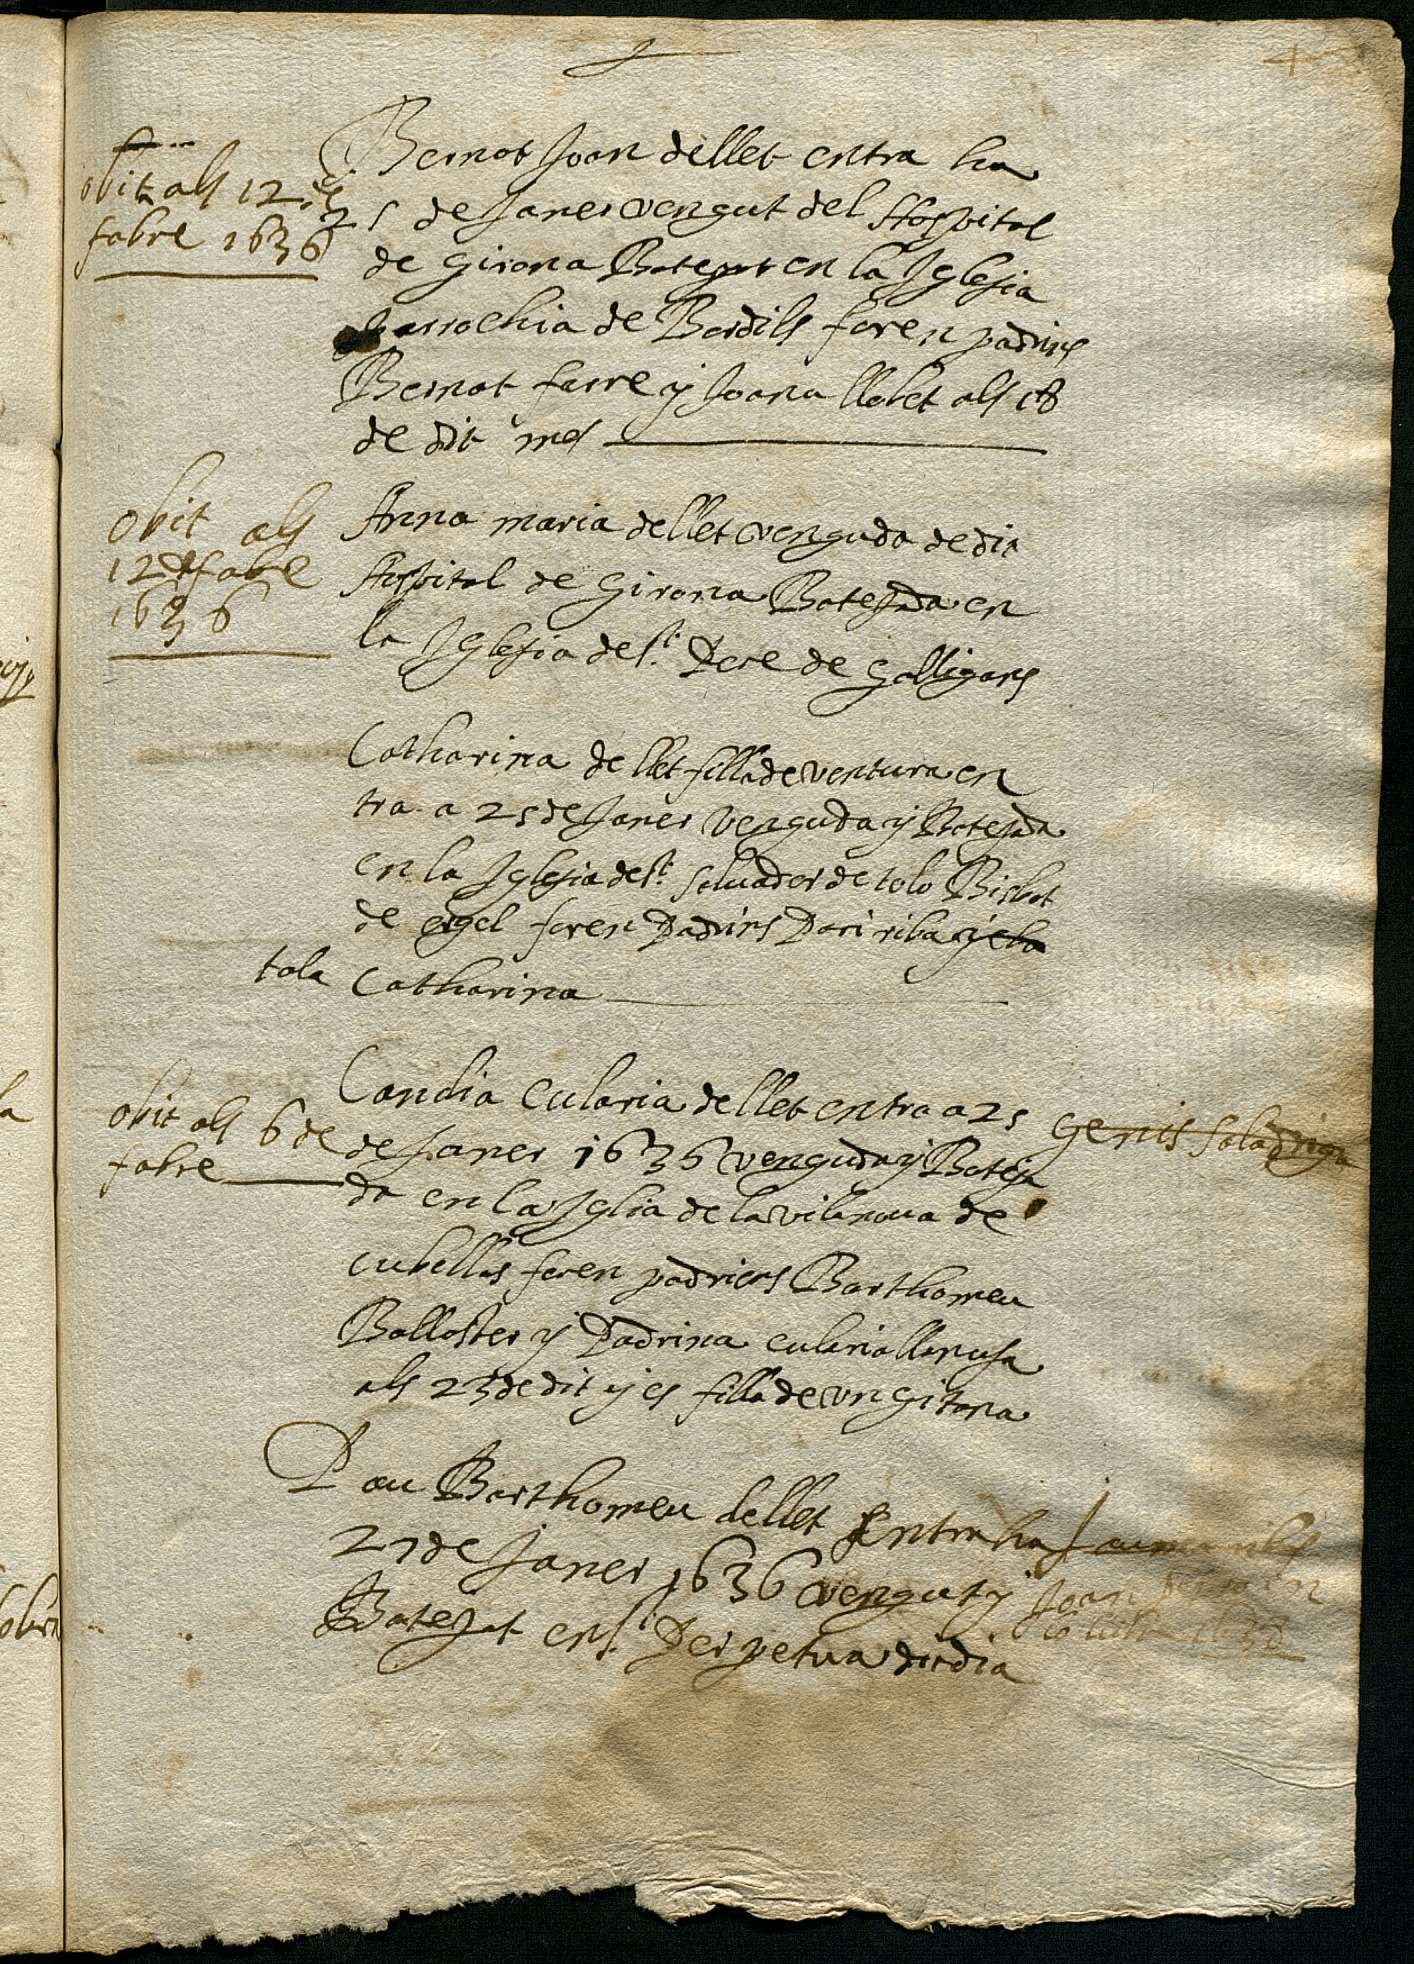 4
obit als 12 de
fabre 1636
Bernot Joan de llet entra ha
25 de Janer vengut del Hospital
de Girona Batejat en la Iglesia
parrochia de Bordils foren padrins
Bernat farre y Joana llobet als 18
de dit mes
obit als
12 de fabre
1636
Anna maria de llet venguda de dit
Hospital de Girona Batejada en
la Iglesia de St. Pere de Galligans
Catharina de llet filla de ventura en
tra a 25 de Janer venguda y Batejada
en la Iglesia de St. Salvador de tolo Bisbat
de Urgel foren Padrins Pari riba y cha
tola Catharina
obit als 6 de
fabre
Candia Eularia de llet entra a 25
de Janer 1636 venguda y Bateja
da en la Iglia de la vilanova de
cubelles foren padriens Barthomeu
Ballester y Padrina eularia llanusa
als 23 de dit y es filla de un gitana
Genis Saladriga
Pau Barthomeu de llet entra ha
27 de Janer 1636 vengut y
Batejat en St. Perpetua dit dia
Joan